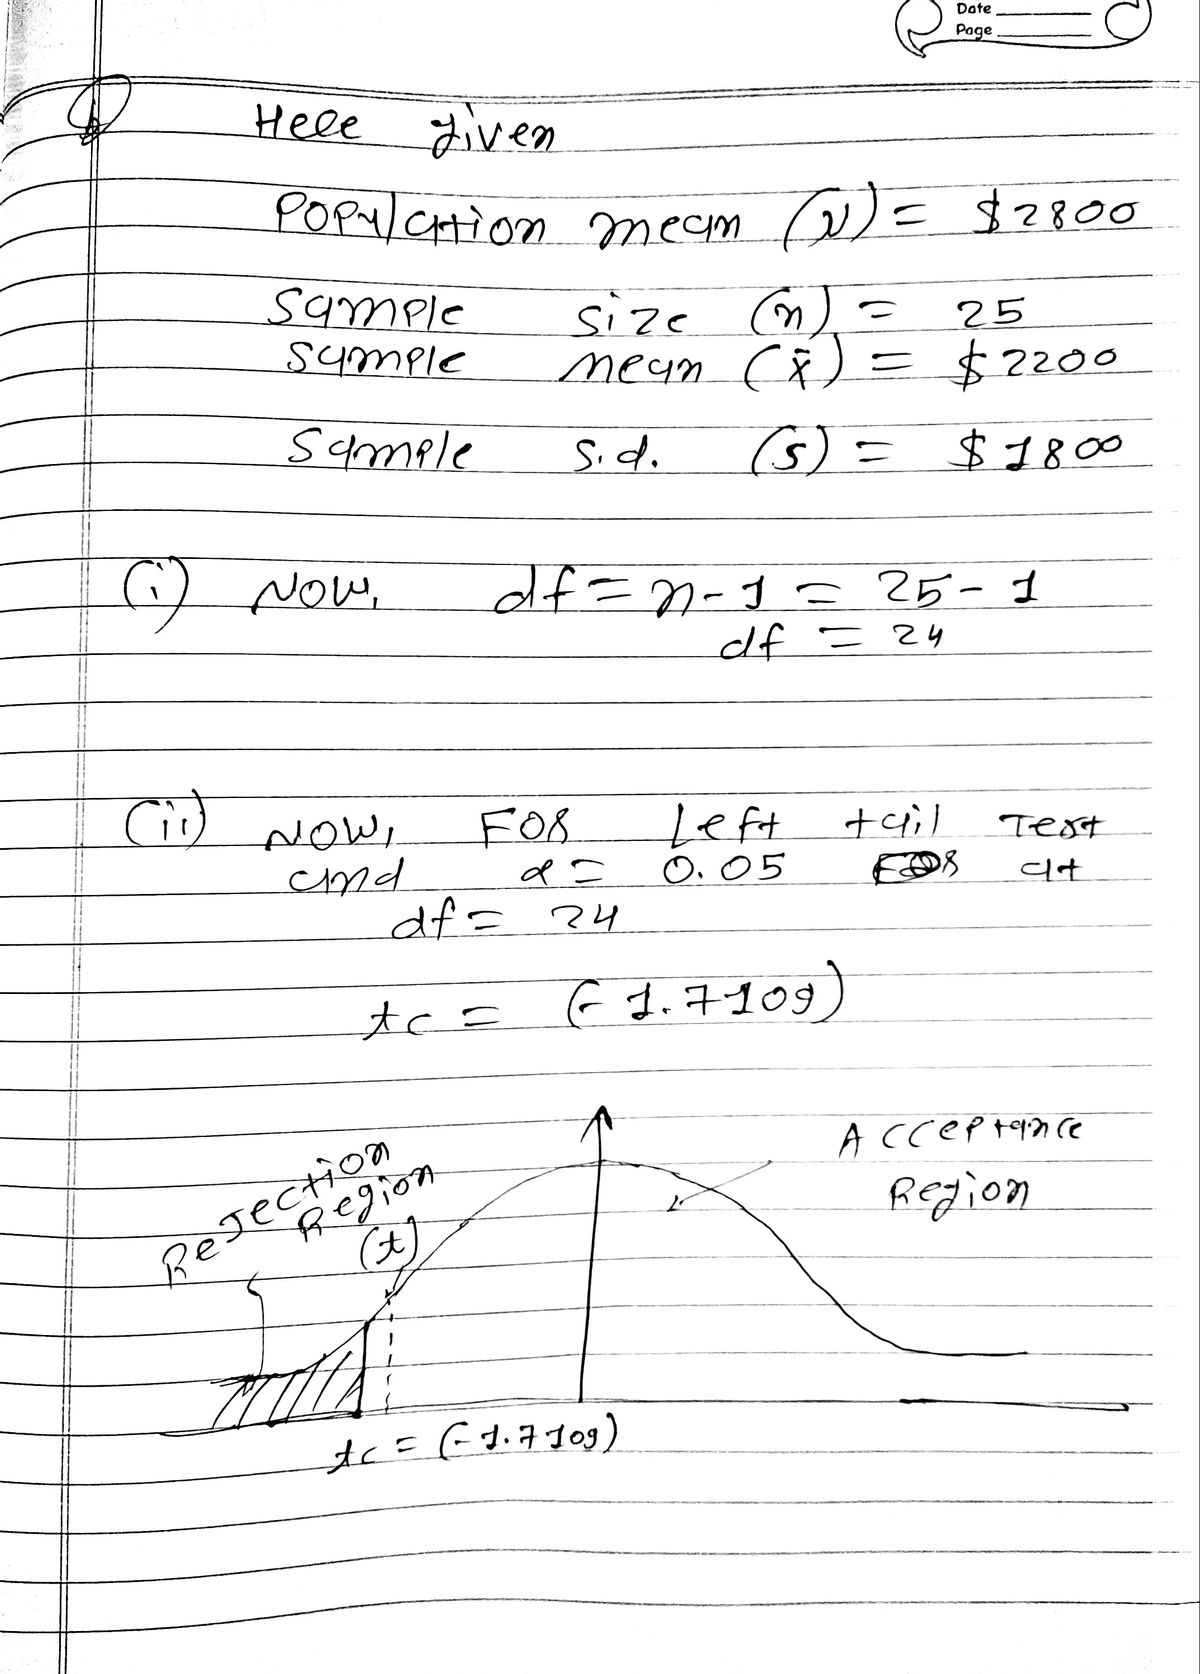 Date
Page
Here given
Population mean (μ) = $2800
Sample size (n) = 25
Sample mean (x̄) = $2200
Sample s.d. (s) = $1800
(i) Now, df = n-1 = 25-1
df = 24
(ii) Now, For Left tail Test
and α = 0.05 at
df = 24
tc = (-1.7109)
Acceptance
Region
Rejection
Region
(t)
tc = (-1.7109)